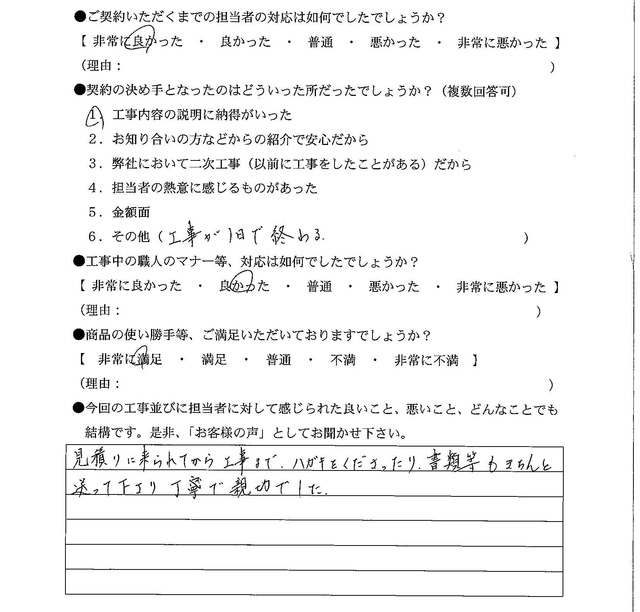 ●ご契約いただくまでの担当者の対応は如何でしたでしょうか？
【 非常に良かった ・ 良かった ・ 普通 ・ 悪かった ・ 非常に悪かった 】
（理由： ）
●契約の決め手となったのはどういった所だったでしょうか？（複数回答可）
1．工事内容の説明に納得がいった
2．お知り合いの方などからの紹介で安心だから
3．弊社において二次工事（以前に工事をしたことがある）だから
4．担当者の熱意に感じるものがあった
5．金額面
6．その他（工事が1日で終わる ）
●工事中の職人のマナー等、対応は如何でしたでしょうか？
【 非常に良かった ・ 良かった ・ 普通 ・ 悪かった ・ 非常に悪かった 】
（理由： ）
●商品の使い勝手等、ご満足いただいておりますでしょうか？
【 非常に満足 ・ 満足 ・ 普通 ・ 不満 ・ 非常に不満 】
（理由： ）
●今回の工事並びに担当者に対して感じられた良いこと、悪いこと、どんなことでも
結構です。是非、「お客様の声」としてお聞かせ下さい。
見積りに来られてから工事まで、ハガキをくださったり、書類等もきちんと
送って下さり丁寧で親切でした。